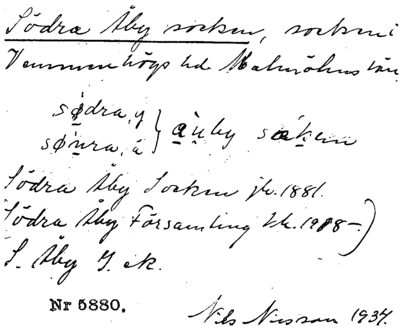 Södra Åby socken, socken i
Vemmenhögs hd Malmöhus län
södra, y
søn̥ra, ä } åu̯by såken
Södra Åby Socken jb. 1881.
Södra Åby Församling kb. 1908–)
S. Åby
Nr 5880.
Nils Nilsson 1934.